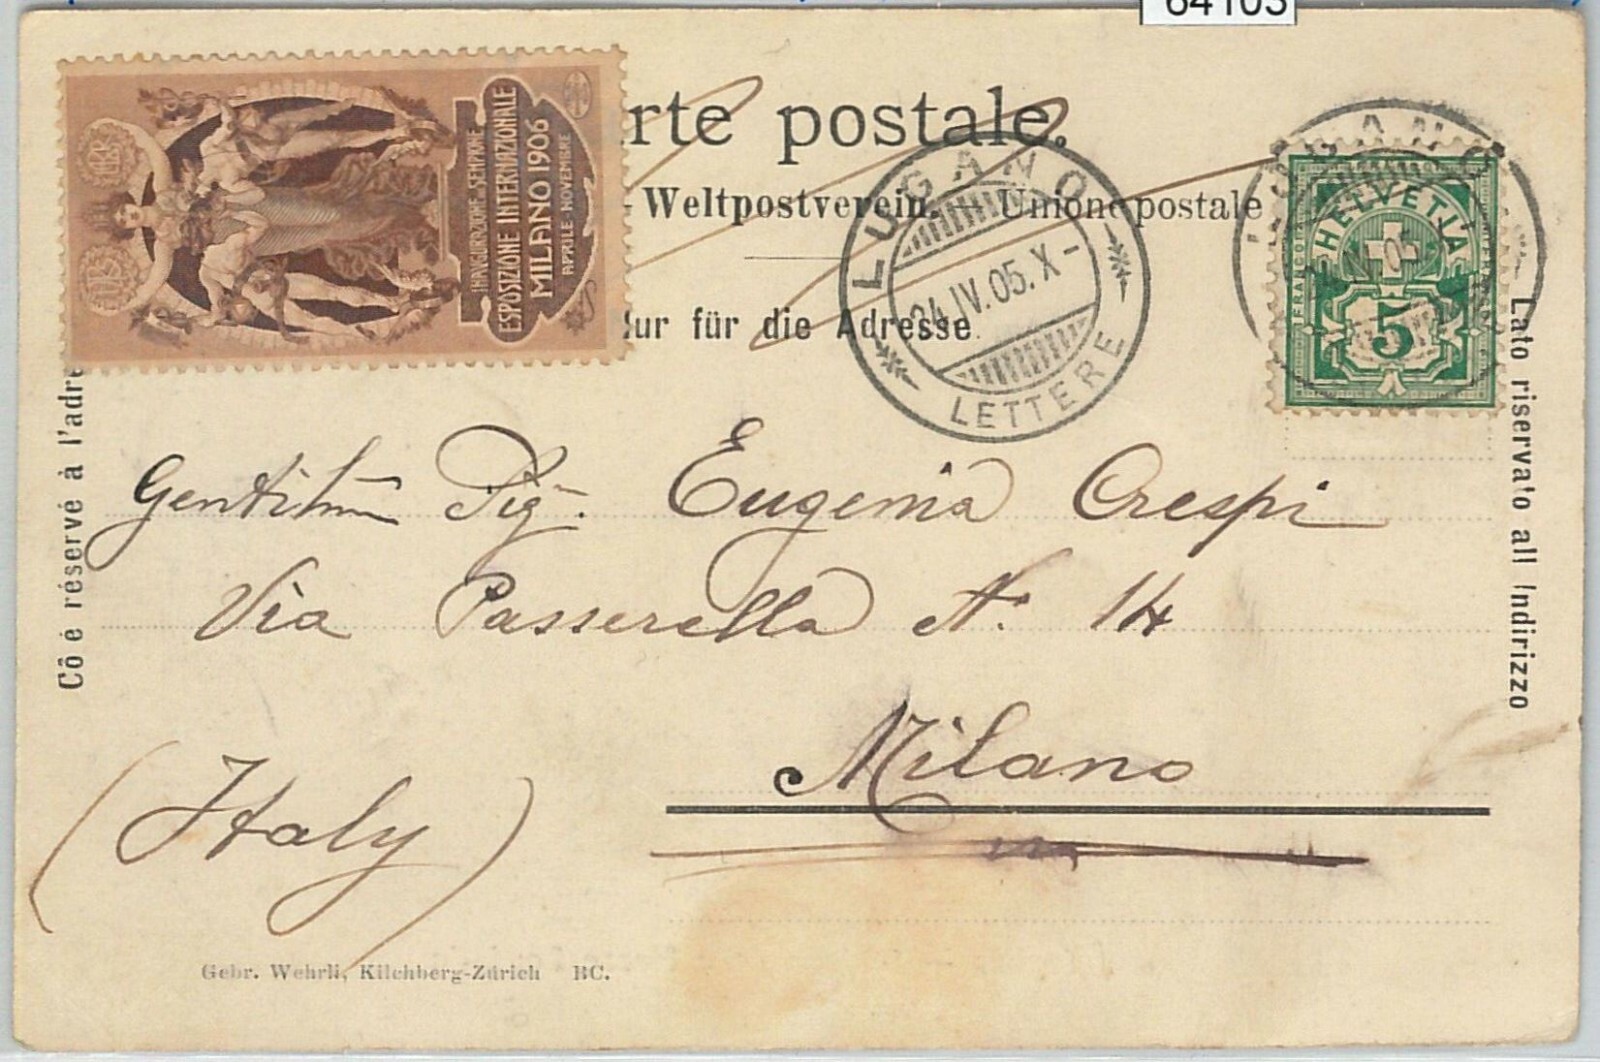 64103
INAUGURAZIONE SEMPIONE
ESPOSIZIONE INTERNAZIONALE
MILANO 1906
APRILE-NOVEMBRE
rte postale.
Weltpostverein. — Unione postale
Nur für die Adresse.
LUGANO
24.IV.05.X-
LETTERE
LUGANO
HELVETIA
FRANCO
5
Cô é réservé à l'adre
Lato riservato all Indirizzo
Gentilm Sig.
Eugenia Crespi
Via Passerella N. 14
Milano
(Italy)
Gebr. Wehrli, Kilchberg-Zürich BC.